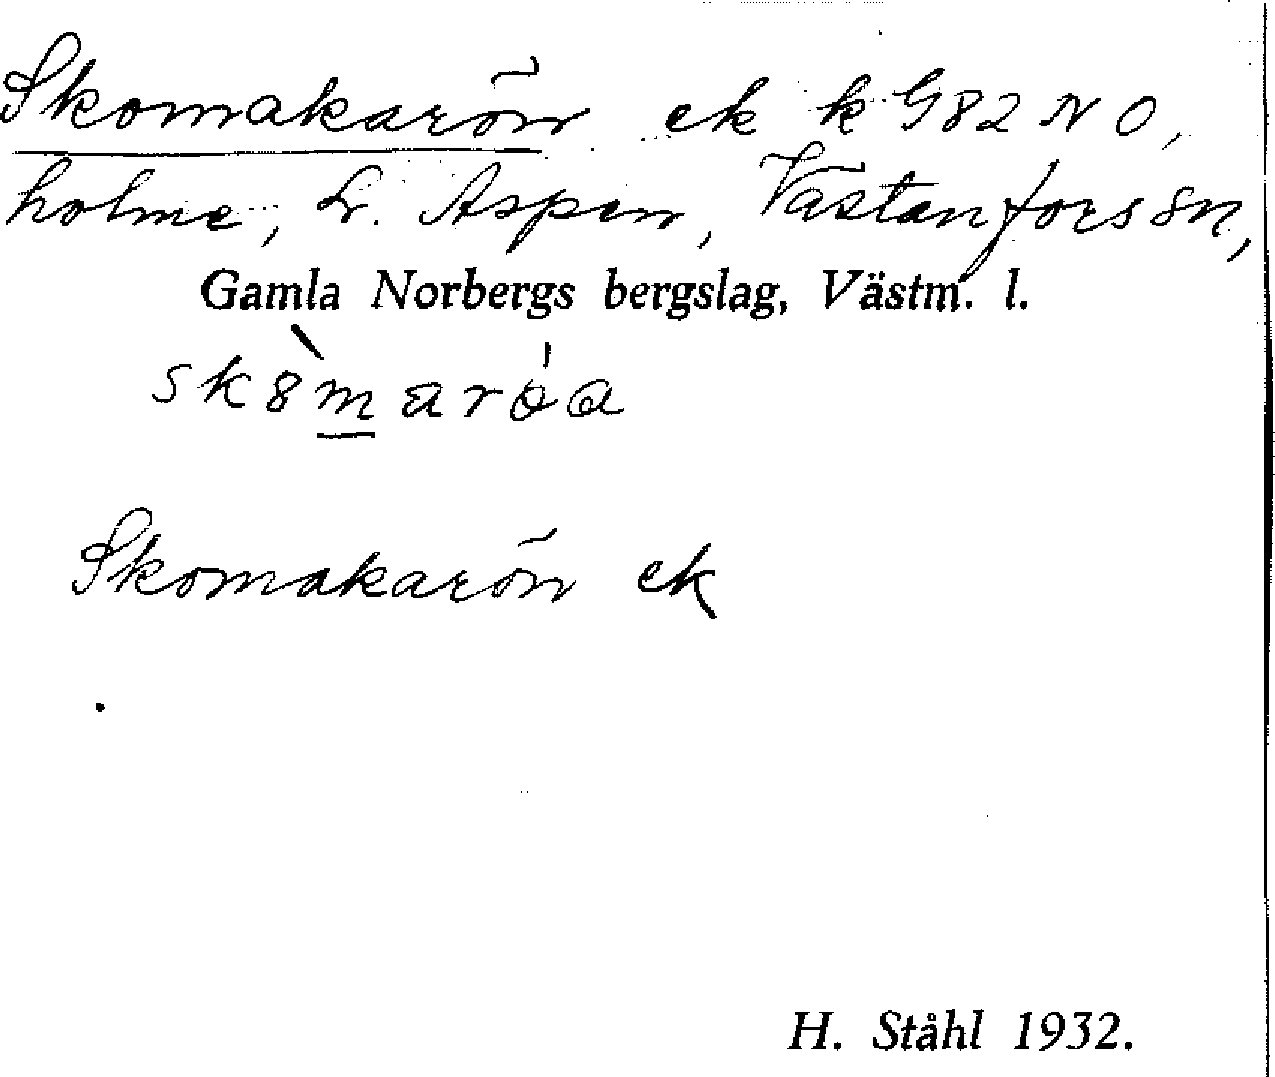 Skomakarön ek k G82 NO,
holme, L. Aspen, Västanfors sn,
Gamla Norbergs bergslag, Västm. l.
sk8maröa
Skomakarön ek
H. Ståhl 1932.